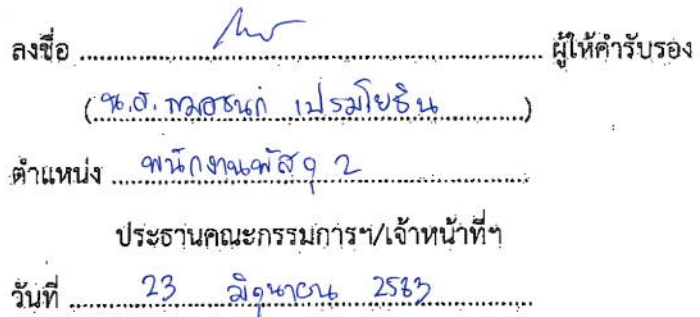 ลงชื่อ ........ ผู้ให้คำรับรอง
( น.ส. เปรมโยธิน )
ตำแหน่ง พนักงานพัสดุ 2
ประธานคณะกรรมการฯ/เจ้าหน้าที่ฯ
วันที่ 23 มิถุนายน 2563